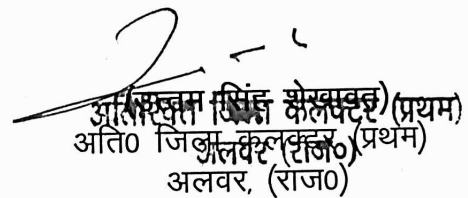 (उत्तम सिंह शेखावत)
अतिरिक्त जिला कलेक्टर (प्रथम)
अति0 जिला कलक्टर (प्रथम)
अलवर (राज0)
अलवर, (राज0)